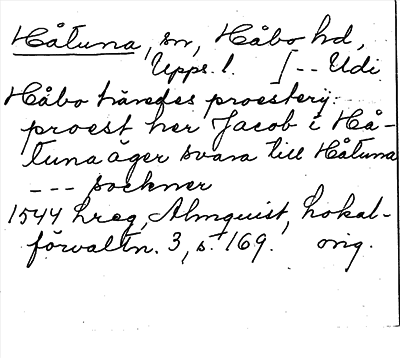 Håtuna, sn, Håbo hd,
Upps. l. [-- Udi
Håbo häredes proestery:
proest her Jacob i Hå-
tuna äger svara till Håtuna
--- sockner
1544 hreg, Almquist, Lokal-
förvaltn. 3, s. 169. orig.